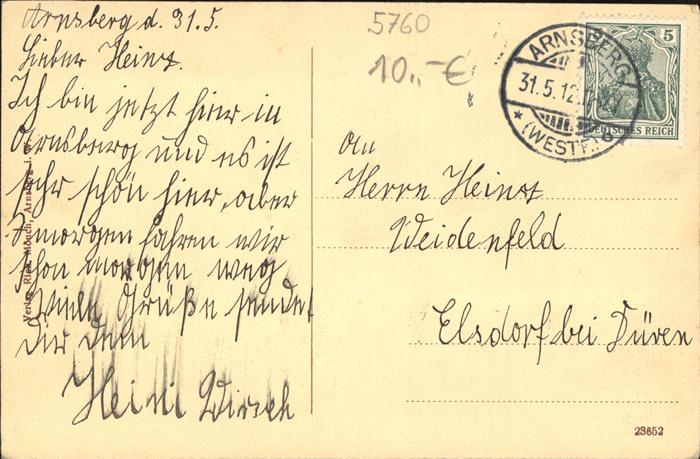 Arnsberg d. 31.5.
Lieber Heinz.
Ich bin jetzt hier in
Arnsberg und es ist
sehr schön hier, aber
morgen fahren wir
schon morgen weg
Viele Grüße sendet
Dir Dein
Heini Wirsch
5760
10.-€
ARNSBERG
31.5.12
* (WESTF.)
5
DEUTSCHES REICH
An
Herrn Heinz
Weidenfeld
Elsdorf bei Düren
23652
Verlag Rich. Arnsberg i. W.